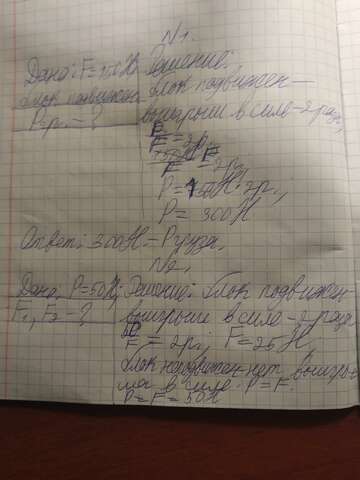 N1.
Дано: F=150Н Решение:
блок подвижен блок подвижен –
Pгр. – ? выигрыш в силе – 2 раза,
P/F = 2р.
P = 150Н·2р.,
P = 300Н
Ответ: 300Н – Pгруза,
N2,
Дано, P=50Н; Решение: блок подвижен-
F1, F2 – ? выигрыш в силе – 2 раза
P/F = 2р.; F = 25Н,
блок неподвижен нет выигры-
ша в силе. P = F.
P = F = 50Н